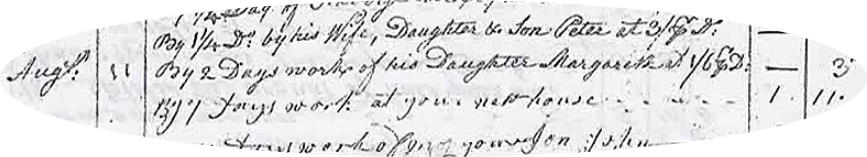 Day of
By 1 1/4 Do. by his Wife, Daughter & Son Peter at 3/ ⅌ Do.
Augt. 11 By 2 Days work of his Daughter Margarett at 1/6 ⅌ Do: — 3
By 7 Days work at your new house 1. 11.
Days work of your Son John